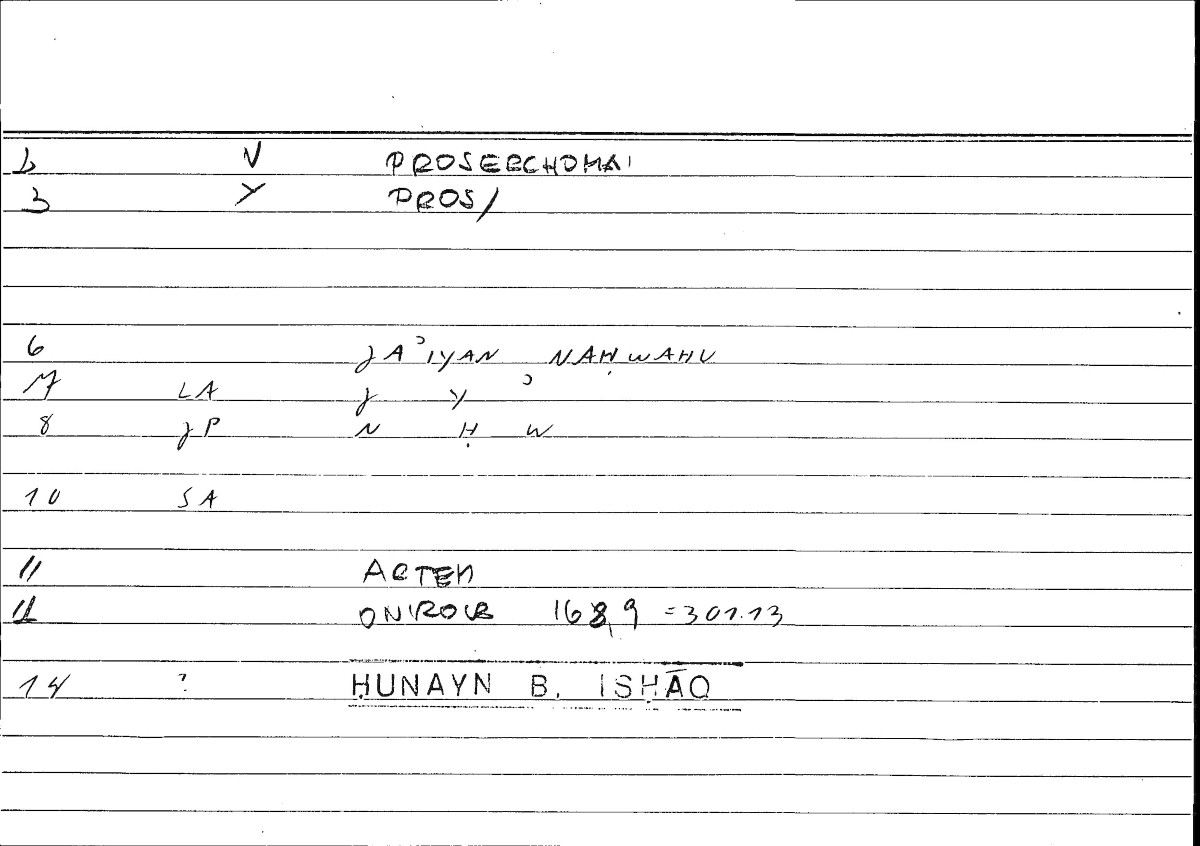 2 V PROSERCHOMAI
3 Y PROS/
6 JAʾIYAN NAḤWAHU
7 LA J Y ʾ
8 JP N Ḥ W
10 SA
11 ARTEM
12 ONIROCR 168,9 =301.13
14 ? ḤUNAYN B. ISḤĀQ